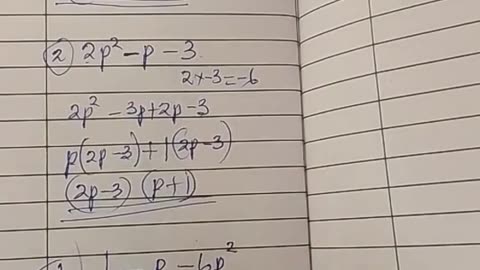 ② 2p² - p - 3
2 x -3 = -6
2p² - 3p + 2p - 3
p(2p - 3) + 1(2p - 3)
(2p - 3) (p + 1)
p - 6p²